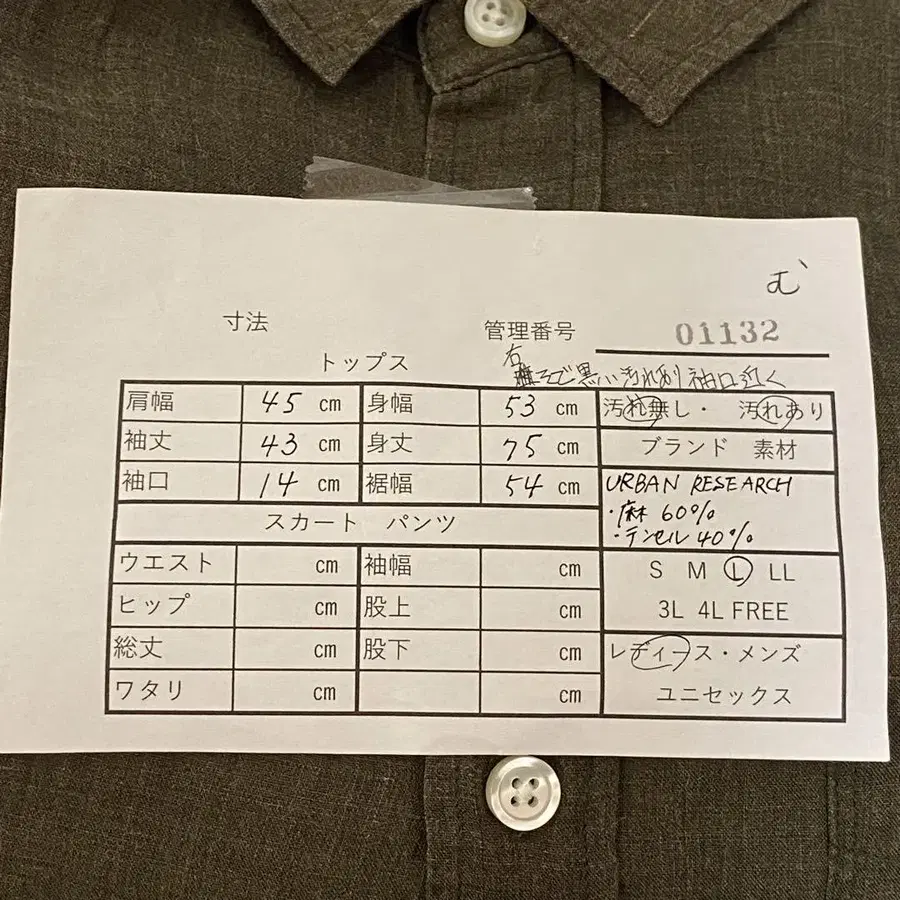 む
寸法 管理番号 01132
トップス
右そで黒い汚れあり 袖口近く
肩幅 45 cm 身幅 53 cm 汚れ無し・ 汚れあり
袖丈 43 cm 身丈 75 cm ブランド 素材
袖口 14 cm 裾幅 54 cm URBAN RESEARCH
・麻 60%
スカート パンツ ・テンセル 40%
ウエスト cm 袖幅 cm S M L LL
ヒップ cm 股上 cm 3L 4L FREE
総丈 cm 股下 cm レディース・メンズ
ワタリ cm cm ユニセックス